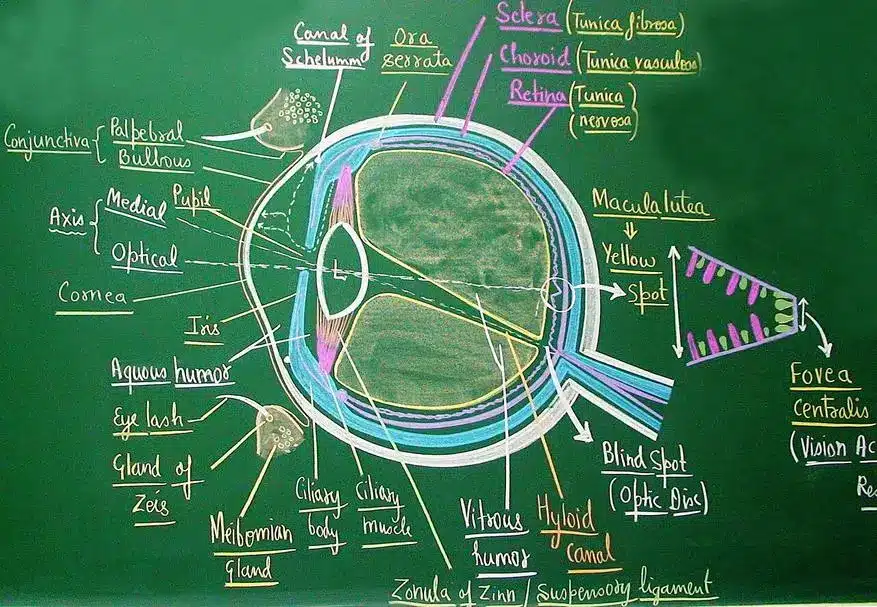 Sclera (Tunica fibrosa)
Choroid (Tunica vasculosa)
Retina (Tunica
nervosa)
Canal of
Schelumm
Ora
serrata
Conjunctiva { Palpebral
Bulbous
Axis { Medial
Optical
Pupil
Cornea
Iris
Aquous humor
Eye lash
Gland of
Zeis
Meibomian
Gland
Ciliary
body
Ciliary
muscle
Zonula of Zinn / Suspensory ligament
Vitrous
humor
Hyloid
canal
Blind Spot
(Optic Disc)
L
Macula lutea
Yellow
Spot
Fovea
Centralis
(Vision Ac
Res